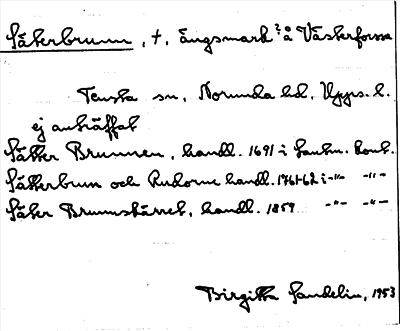 Säterbrunn, †, ängsmark? å Västerforssa
Tensta sn, Norunda hd, Upps. l.
ej anträffat
Sätter Brunnen, handl. 1691 i Lantm. kont.
Sätterbrun och Rudorne handl. 1761-62 i -"- -"-
Säter Brunnskärret, handl. 1859 -"- -"-
Birgitta Sandelin, 1953